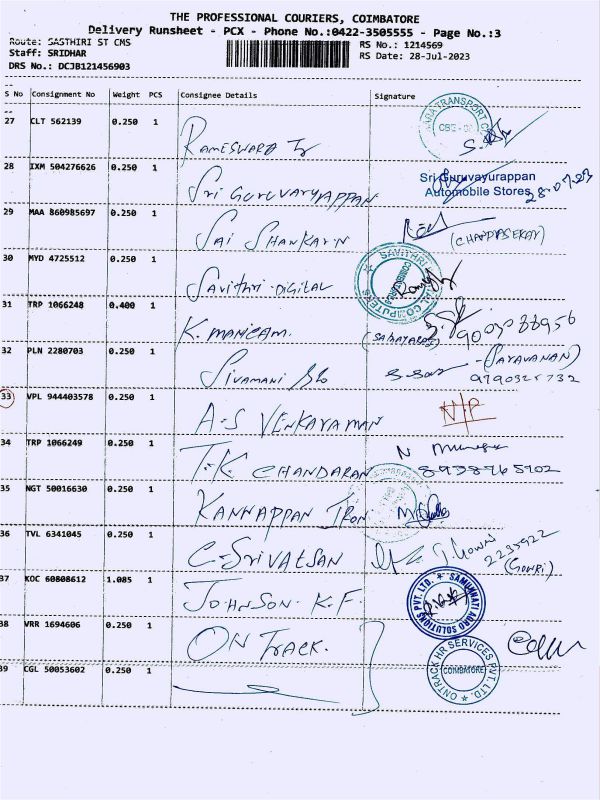 THE PROFESSIONAL COURIERS, COIMBATORE
Delivery Runsheet - PCX - Phone No.:0422-3505555 - Page No.:3
Route: SASTHIRI ST CMS
RS No.: 1214569
Staff: SRIDHAR
RS Date: 28-Jul-2023
DRS No.: DCJB121456903
S No Consignment No Weight PCS Consignee Details Signature
27 CLT 562139 0.250 1 RAMESWARA
28 IXM 504276626 0.250 1 Sri GURUVAYURAPPAN Sri Guruvayurappan
Automobile Stores 28.07.23
29 MAA 860985697 0.250 1 SAI SHANKAR'N
30 MYD 4725512 0.250 1 SAVITHRI DIGITAL SAVITHRI DIGITAL COMPUTERS
31 TRP 1066248 0.400 1 K. MANICAM. 9003088956
32 PLN 2280703 0.250 1 SIVAMANI S/o (SARAVANAN)
33 VPL 944403578 0.250 1 A-S VENKATAMAN N/P
34 TRP 1066249 0.250 1 T.K CHANDARAN N
8938965902
35 NGT 50016630 0.250 1 KANNAPPAN IRON
36 TVL 6341045 0.250 1 C-SRIVATSAN
2235922
(GOWRI)
37 KOC 60808612 1.085 1 JOHNSON. K.F. SAMUNNATI AGRO SOLUTIONS PVT. LTD.
38 VRR 1694606 0.250 1 ON TRACK.
39 CGL 50053602 0.250 1 ONTRACK HR SERVICES PVT. LTD. COIMBATORE